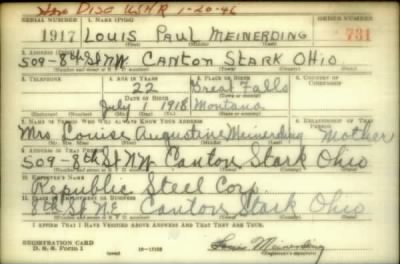 Hon Disc USNR 1-20-46
SERIAL NUMBER 1. NAME (Print) ORDER NUMBER
1917 Louis Paul Meinerding 731
(First) (Middle) (Last)
2. ADDRESS (Print)
509-8th St NW Canton Stark Ohio
3. TELEPHONE 4. AGE IN YEARS 5. PLACE OF BIRTH 6. COUNTRY OF CITIZENSHIP
22 Great Falls
DATE OF BIRTH
July 1 1918 Montana
7. NAME OF PERSON WHO WILL ALWAYS KNOW YOUR ADDRESS 8. RELATIONSHIP OF THAT PERSON
Mrs. Louise Augustine Meinerding Mother
(Mr., Mrs., Miss) (First) (Middle) (Last)
9. ADDRESS OF THAT PERSON
509-8th St NW Canton Stark Ohio
10. EMPLOYER'S NAME
Republic Steel Corp.
11. PLACE OF EMPLOYMENT OR BUSINESS
8th St NE Canton Stark Ohio
I AFFIRM THAT I HAVE VERIFIED ABOVE ANSWERS AND THAT THEY ARE TRUE.
REGISTRATION CARD
D. S. S. Form 1 Louis Meinerding
(Registrant's signature)